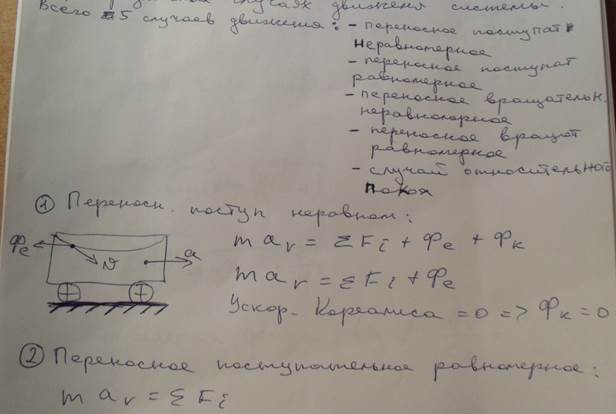 случаях движения системы.
Всего 5 случаев движения: - переносное поступат
неравномерное
- переносное поступат
равномерное
- переносное вращательн
неравномерное
- переносное вращат
равномерное
- случай относительного
покоя
① Переносн. поступ неравном:
Фe
v
a
m a_r = ΣFi + Фe + Фк
m a_r = ΣFi + Фe
Ускор. Кореалиса = 0 => Фк = 0
② Переносное поступательное равномерное:
m a_r = ΣFi